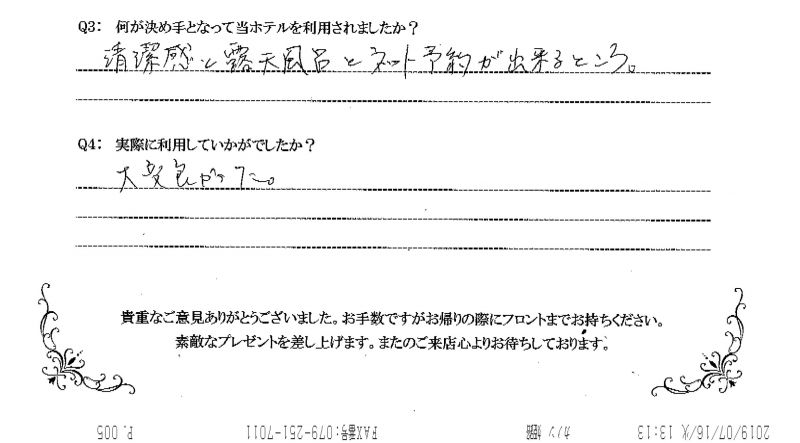 Q3： 何が決め手となって当ホテルを利用されましたか？
清潔感と露天風呂とネット予約が出来るところ。
Q4： 実際に利用していかがでしたか？
大変良かった。
貴重なご意見ありがとうございました。お手数ですがお帰りの際にフロントまでお持ちください。
素敵なプレゼントを差し上げます。またのご来店心よりお待ちしております。
2019/07/16/火 13:13 カノン FAX番号:079-251-7011 P. 005